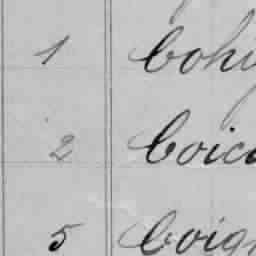 1 Cohi
2 Coica
5 Coign